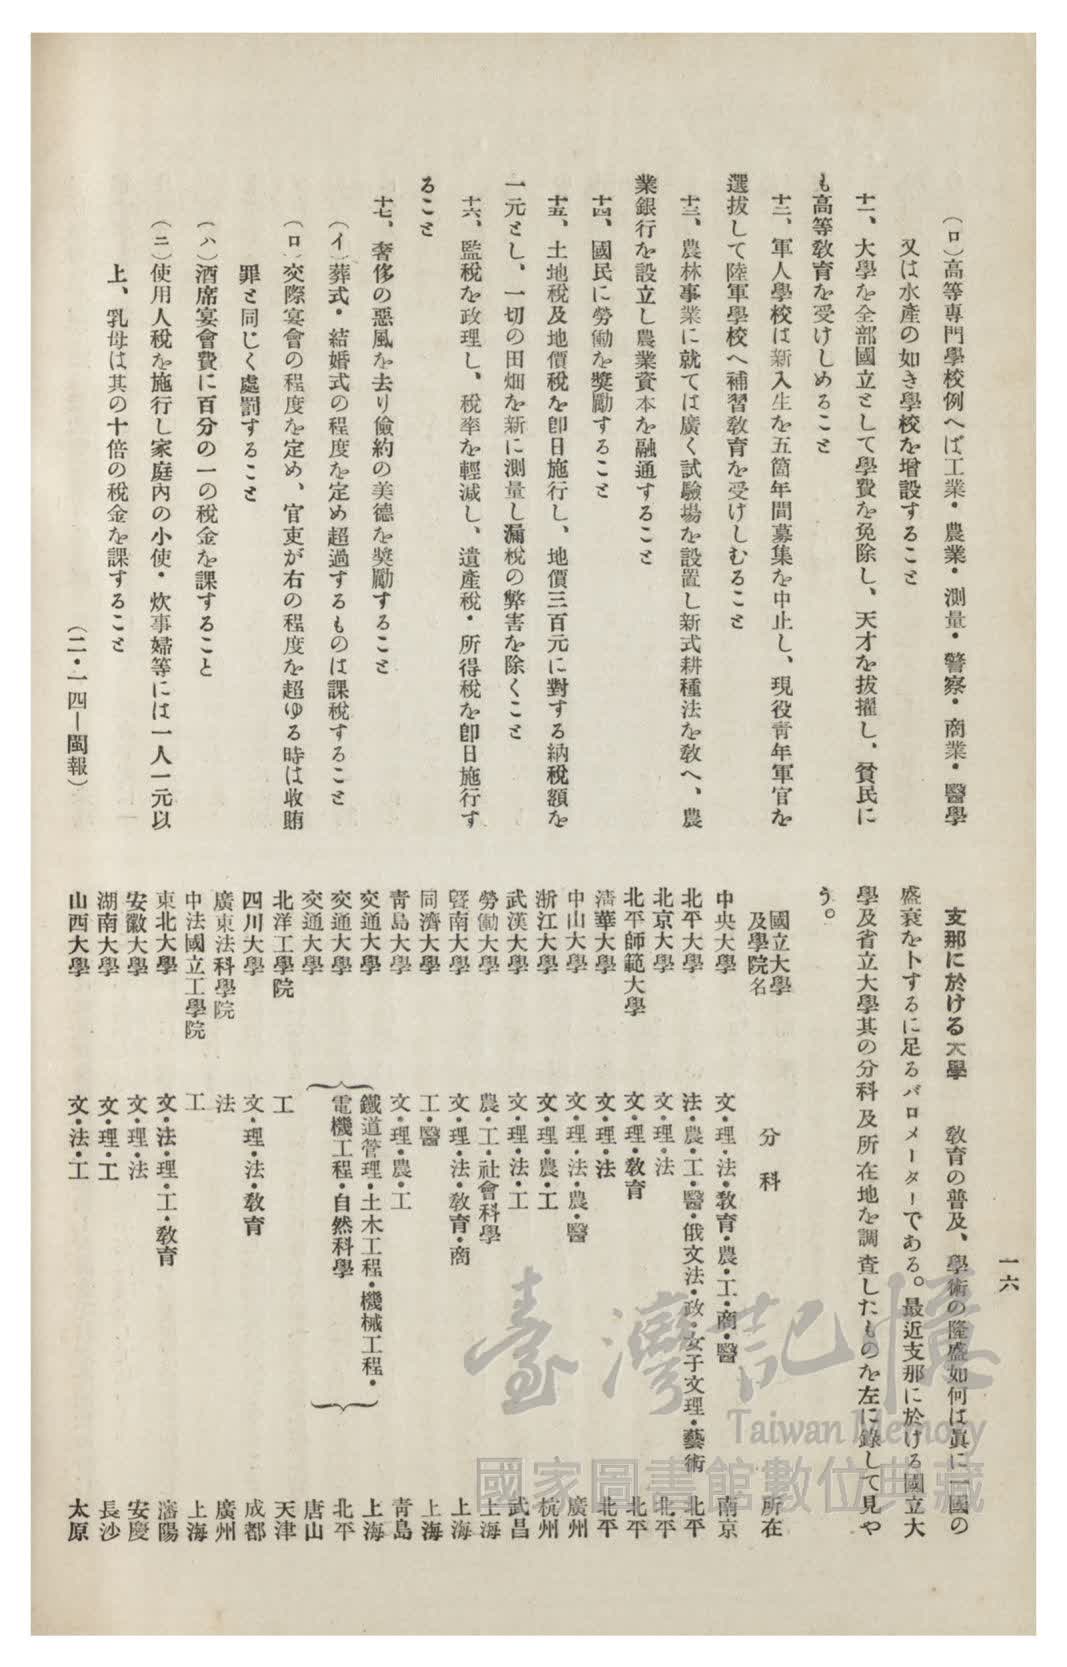 一六
(ロ)高等專門學校例へば工業・農業・測量・警察・商業・醫學
又は水產の如き學校を增設すること
十一、大學を全部國立として學費を免除し、天才を拔擢し、貧民に
も高等敎育を受けしめること
十二、軍人學校は新入生を五箇年間募集を中止し、現役靑年軍官を
選拔して陸軍學校へ補習敎育を受けしむること
十三、農林事業に就ては廣く試驗場を設置し新式耕種法を敎へ、農
業銀行を設立し農業資本を融通すること
十四、國民に勞働を奬勵すること
十五、土地稅及地價稅を卽日施行し、地價三百元に對する納稅額を
一元とし、一切の田畑を新に測量し漏稅の弊害を除くこと
十六、監稅を政理し、稅率を輕減し、遺產稅・所得稅を卽日施行す
ること
十七、奢侈の惡風を去り儉約の美德を奬勵すること
(イ)葬式・結婚式の程度を定め超過するものは課稅すること
(ロ)交際宴會の程度を定め、官吏が右の程度を超ゆる時は收賄
罪と同じく處罰すること
(ハ)酒席宴會費に百分の一の稅金を課すること
(ニ)使用人稅を施行し家庭內の小使・炊事婦等には一人一元以
上、乳母は其の十倍の稅金を課すること
(二・一四—閩報)
支那に於ける大學 敎育の普及、學術の隆盛如何は眞に一國の
盛衰を卜するに足るバロメーターである。最近支那に於ける國立大
學及省立大學其の分科及所在地を調査したものを左に錄して見や
う。
國立大學及學院名 分科 所在
中央大學 文・理・法・敎育・農・工・商・醫 南京
北平大學 法・農・工・醫・俄文法・政・女子文理・藝術 北平
北京大學 文・理・法 北平
北平師範大學 文・理・敎育 北平
淸華大學 文・理・法 北平
中山大學 文・理・法・農・醫 廣州
浙江大學 文・理・農・工 杭州
武漢大學 文・理・法・工 武昌
勞働大學 農・工・社會科學 上海
曁南大學 文・理・法・敎育・商 上海
同濟大學 工・醫 上海
靑島大學 文・理・農・工 靑島
交通大學 鐵道管理・土木工程・機械工程・ 上海
交通大學 電機工程・自然科學 北平
交通大學 唐山
北洋工學院 工 天津
四川大學 文・理・法・敎育 成都
廣東法科學院 法 廣州
中法國立工學院 工 上海
東北大學 文・法・理・工・敎育 瀋陽
安徽大學 文・理・法 安慶
湖南大學 文・理・工 長沙
山西大學 文・法・工 太原
臺灣記憶
Taiwan Memory
國家圖書館數位典藏